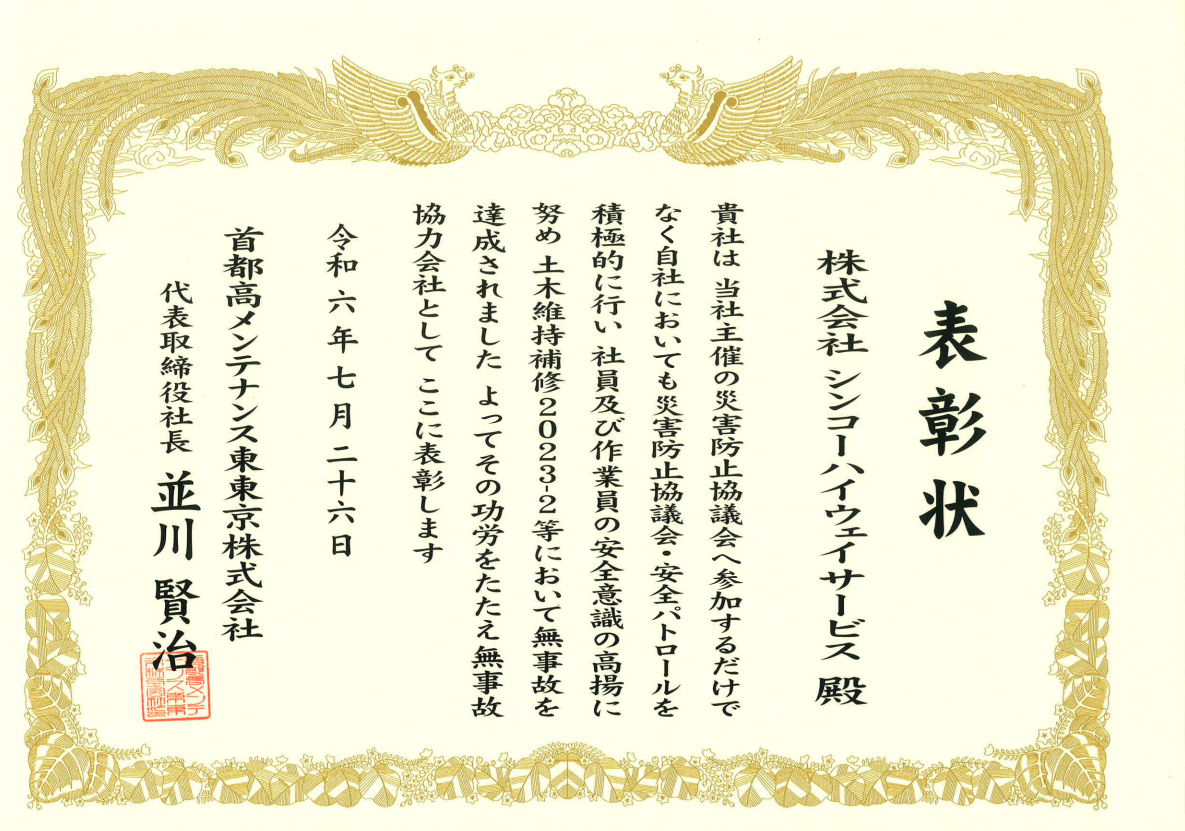 表彰状
株式会社 シンコーハイウェイサービス 殿
貴社は 当社主催の災害防止協議会へ参加するだけで
なく自社においても災害防止協議会・安全パトロールを
積極的に行い 社員及び作業員の安全意識の高揚に
努め 土木維持補修2023-2等において無事故を
達成されました よってその功労をたたえ無事故
協力会社として ここに表彰します
令和六年七月二十六日
首都高メンテナンス東東京株式会社
代表取締役社長 並川 賢治